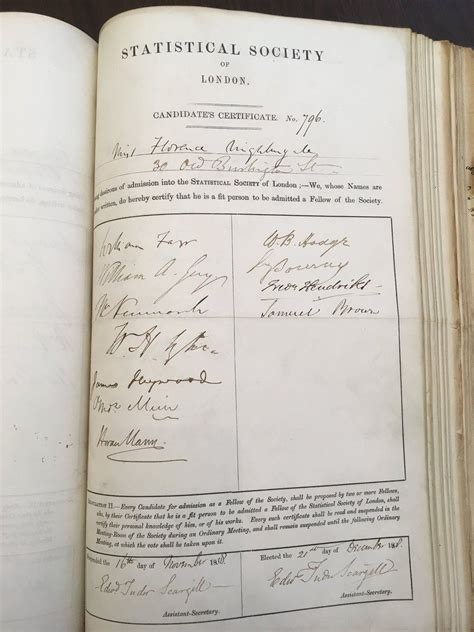 STATISTICAL SOCIETY
OF
LONDON.
CANDIDATE'S CERTIFICATE. No. 796.
Miss Florence Nightingale
30 Old Burlington St
being desirous of admission into the STATISTICAL SOCIETY of LONDON;—We, whose Names are
under written, do hereby certify that he is a fit person to be admitted a Fellow of the Society.
William Farr
William A. Guy
W.
James Heywood
Muir
Horace Mann
W. B. Hodge
Hendriks
Samuel Brown
REGULATION II.—Every Candidate for admission as a Fellow of the Society, shall be proposed by two or more Fellows,
who, by their Certificate that he is a fit person to be admitted a Fellow of the Statistical Society of London, shall
certify their personal knowledge of him, or of his works. Every such certificate shall be read and suspended in the
Meeting-Room of the Society during an Ordinary Meeting, and shall remain suspended until the following Ordinary
Meeting, at which the vote shall be taken upon it.
Suspended the 16th day of November 1858.
Edwd Tudor Scargill
Assistant-Secretary.
Elected the 21st day of December 1858.
Edwd Tudor Scargill
Assistant-Secretary.